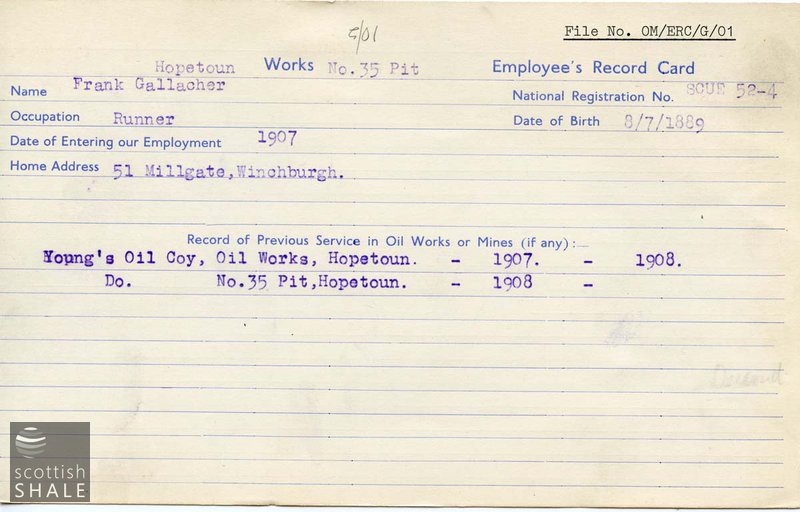 5/01
File No. OM/ERC/G/01
Hopetoun Works No.35 Pit Employee's Record Card
Name Frank Gallacher
National Registration No. SCUE 52-4
Occupation Runner
Date of Birth 8/7/1889
Date of Entering our Employment 1907
Home Address 51 Millgate,Winchburgh.
Record of Previous Service in Oil Works or Mines (if any):—
Young's Oil Coy, Oil Works, Hopetoun. - 1907. - 1908.
Do. No.35 Pit,Hopetoun. - 1908 -
scottish
SHALE